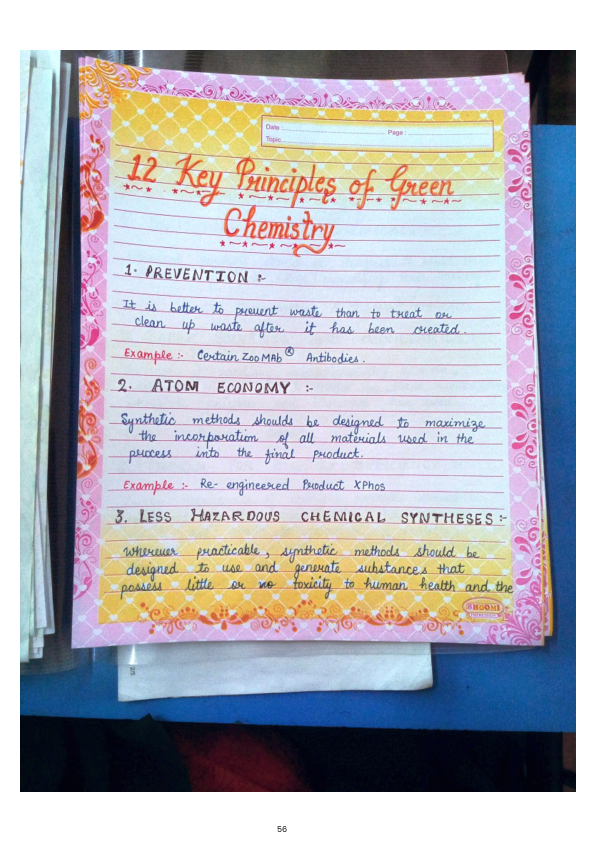 Date :
Page :
Topic
12 Key Principles of Green
Chemistry
1. PREVENTION :-
It is better to prevent waste than to treat or
clean up waste after it has been created.
Example :- Certain ZooMAb® Antibodies.
2. ATOM ECONOMY :-
Synthetic methods shoulds be designed to maximize
the incorporation of all materials used in the
process into the final product.
Example :- Re-engineered Product XPhos
3. LESS HAZARDOUS CHEMICAL SYNTHESES :-
Wherever practicable, synthetic methods should be
designed to use and generate substances that
possess little or no toxicity to human health and the
BHOOMI
56